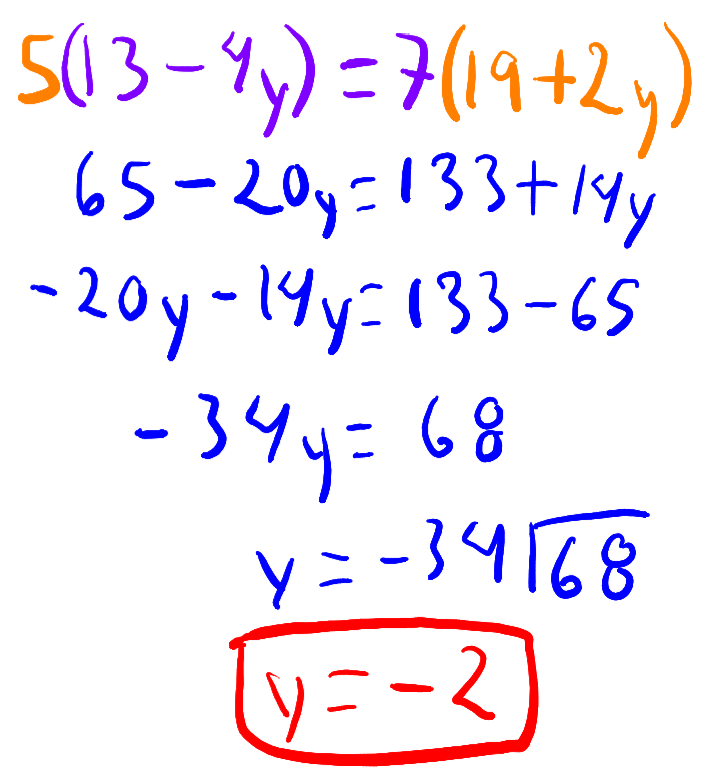 5(13-4y)=7(19+2y)
65-20y=133+14y
-20y-14y=133-65
-34y=68
y=-34⟌68
y=-2